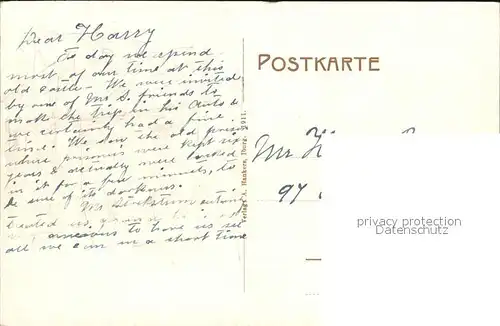 Dear Harry
To day we spend
most of our time at this
old castle - We were invited
by one of Mr S. friends to
make the trip in his Auto &
we certainly had a fine
time. We saw the old prison
where prisoners were kept six
years & actually were locked
in it for a few minutes, to
be sure of its darkness.
Mr
treated us
to have us see
all we can in a short time
POSTKARTE
Mr
97
privacy protection